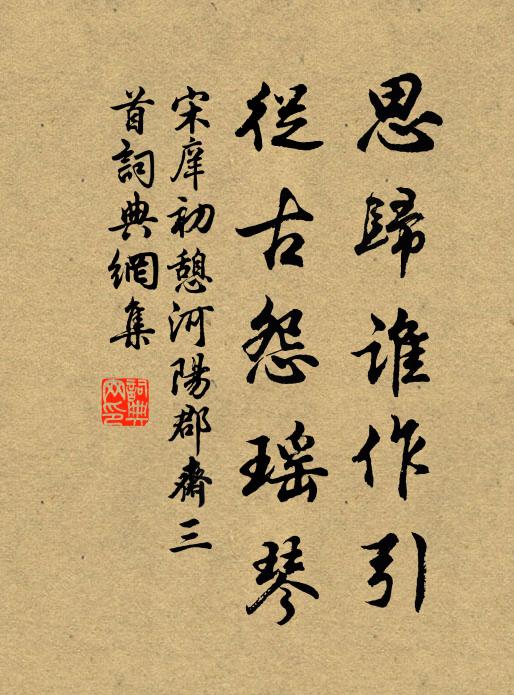 思歸誰作引
從古怨瑤琴
宋庠初憩河陽郡齋三
首詞典網集
詞典網印